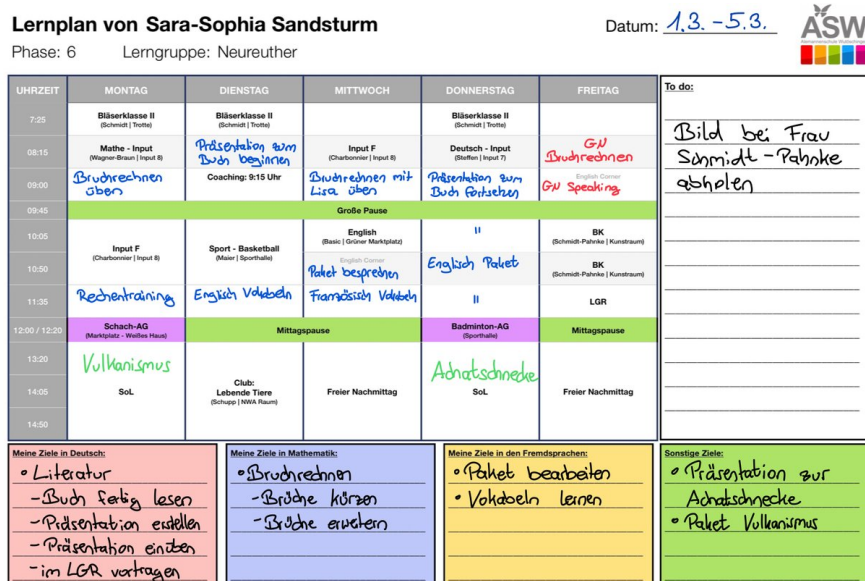 Lernplan von Sara-Sophia Sandsturm
Datum: 1.3. - 5.3.
ASW
Phase: 6 Lerngruppe: Neureuther
UHRZEIT MONTAG DIENSTAG MITTWOCH DONNERSTAG FREITAG
7:25
Bläserklasse II
(Schmidt | Trotte)
Bläserklasse II
(Schmidt | Trotte)
Bläserklasse II
(Schmidt | Trotte)
08:15
Mathe - Input
(Wagner-Braun | Input 8)
Präsentation zum
Buch beginnen
Input F
(Charbonnier | Input 8)
Deutsch - Input
(Steffen | Input 7)
GN
Bruchrechnen
09:00
Bruchrechnen
üben
Coaching: 9:15 Uhr
Bruchrechnen mit
Lisa üben
Präsentation zum
Buch fortsetzen
English Corner
GN Speaking
09:45
Große Pause
10:05
Input F
(Charbonnier | Input 8)
Sport - Basketball
(Maier | Sporthalle)
English
(Basic | Grüner Marktplatz)
"
BK
(Schmidt-Pahnke | Kunstraum)
10:50
English Corner
Paket besprechen
Englisch Paket
BK
(Schmidt-Pahnke | Kunstraum)
11:35
Rechentraining
Englisch Vokabeln
Französisch Vokabeln
"
LGR
12:00 / 12:20
Schach-AG
(Marktplatz - Weißes Haus)
Mittagspause
Badminton-AG
(Sporthalle)
Mittagspause
13:20
Vulkanismus
Achatschnecke
14:05
SoL
Club:
Lebende Tiere
(Schupp | NWA Raum)
Freier Nachmittag
SoL
Freier Nachmittag
14:50
To do:
Bild bei Frau
Schmidt-Pahnke
abholen
Meine Ziele in Deutsch:
• Literatur
- Buch fertig lesen
- Präsentation erstellen
- Präsentation einüben
- im LGR vortragen
Meine Ziele in Mathematik:
• Bruchrechnen
- Brüche kürzen
- Brüche erweitern
Meine Ziele in den Fremdsprachen:
• Paket bearbeiten
• Vokabeln lernen
Sonstige Ziele:
• Präsentation zur
Achatschnecke
• Paket Vulkanismus